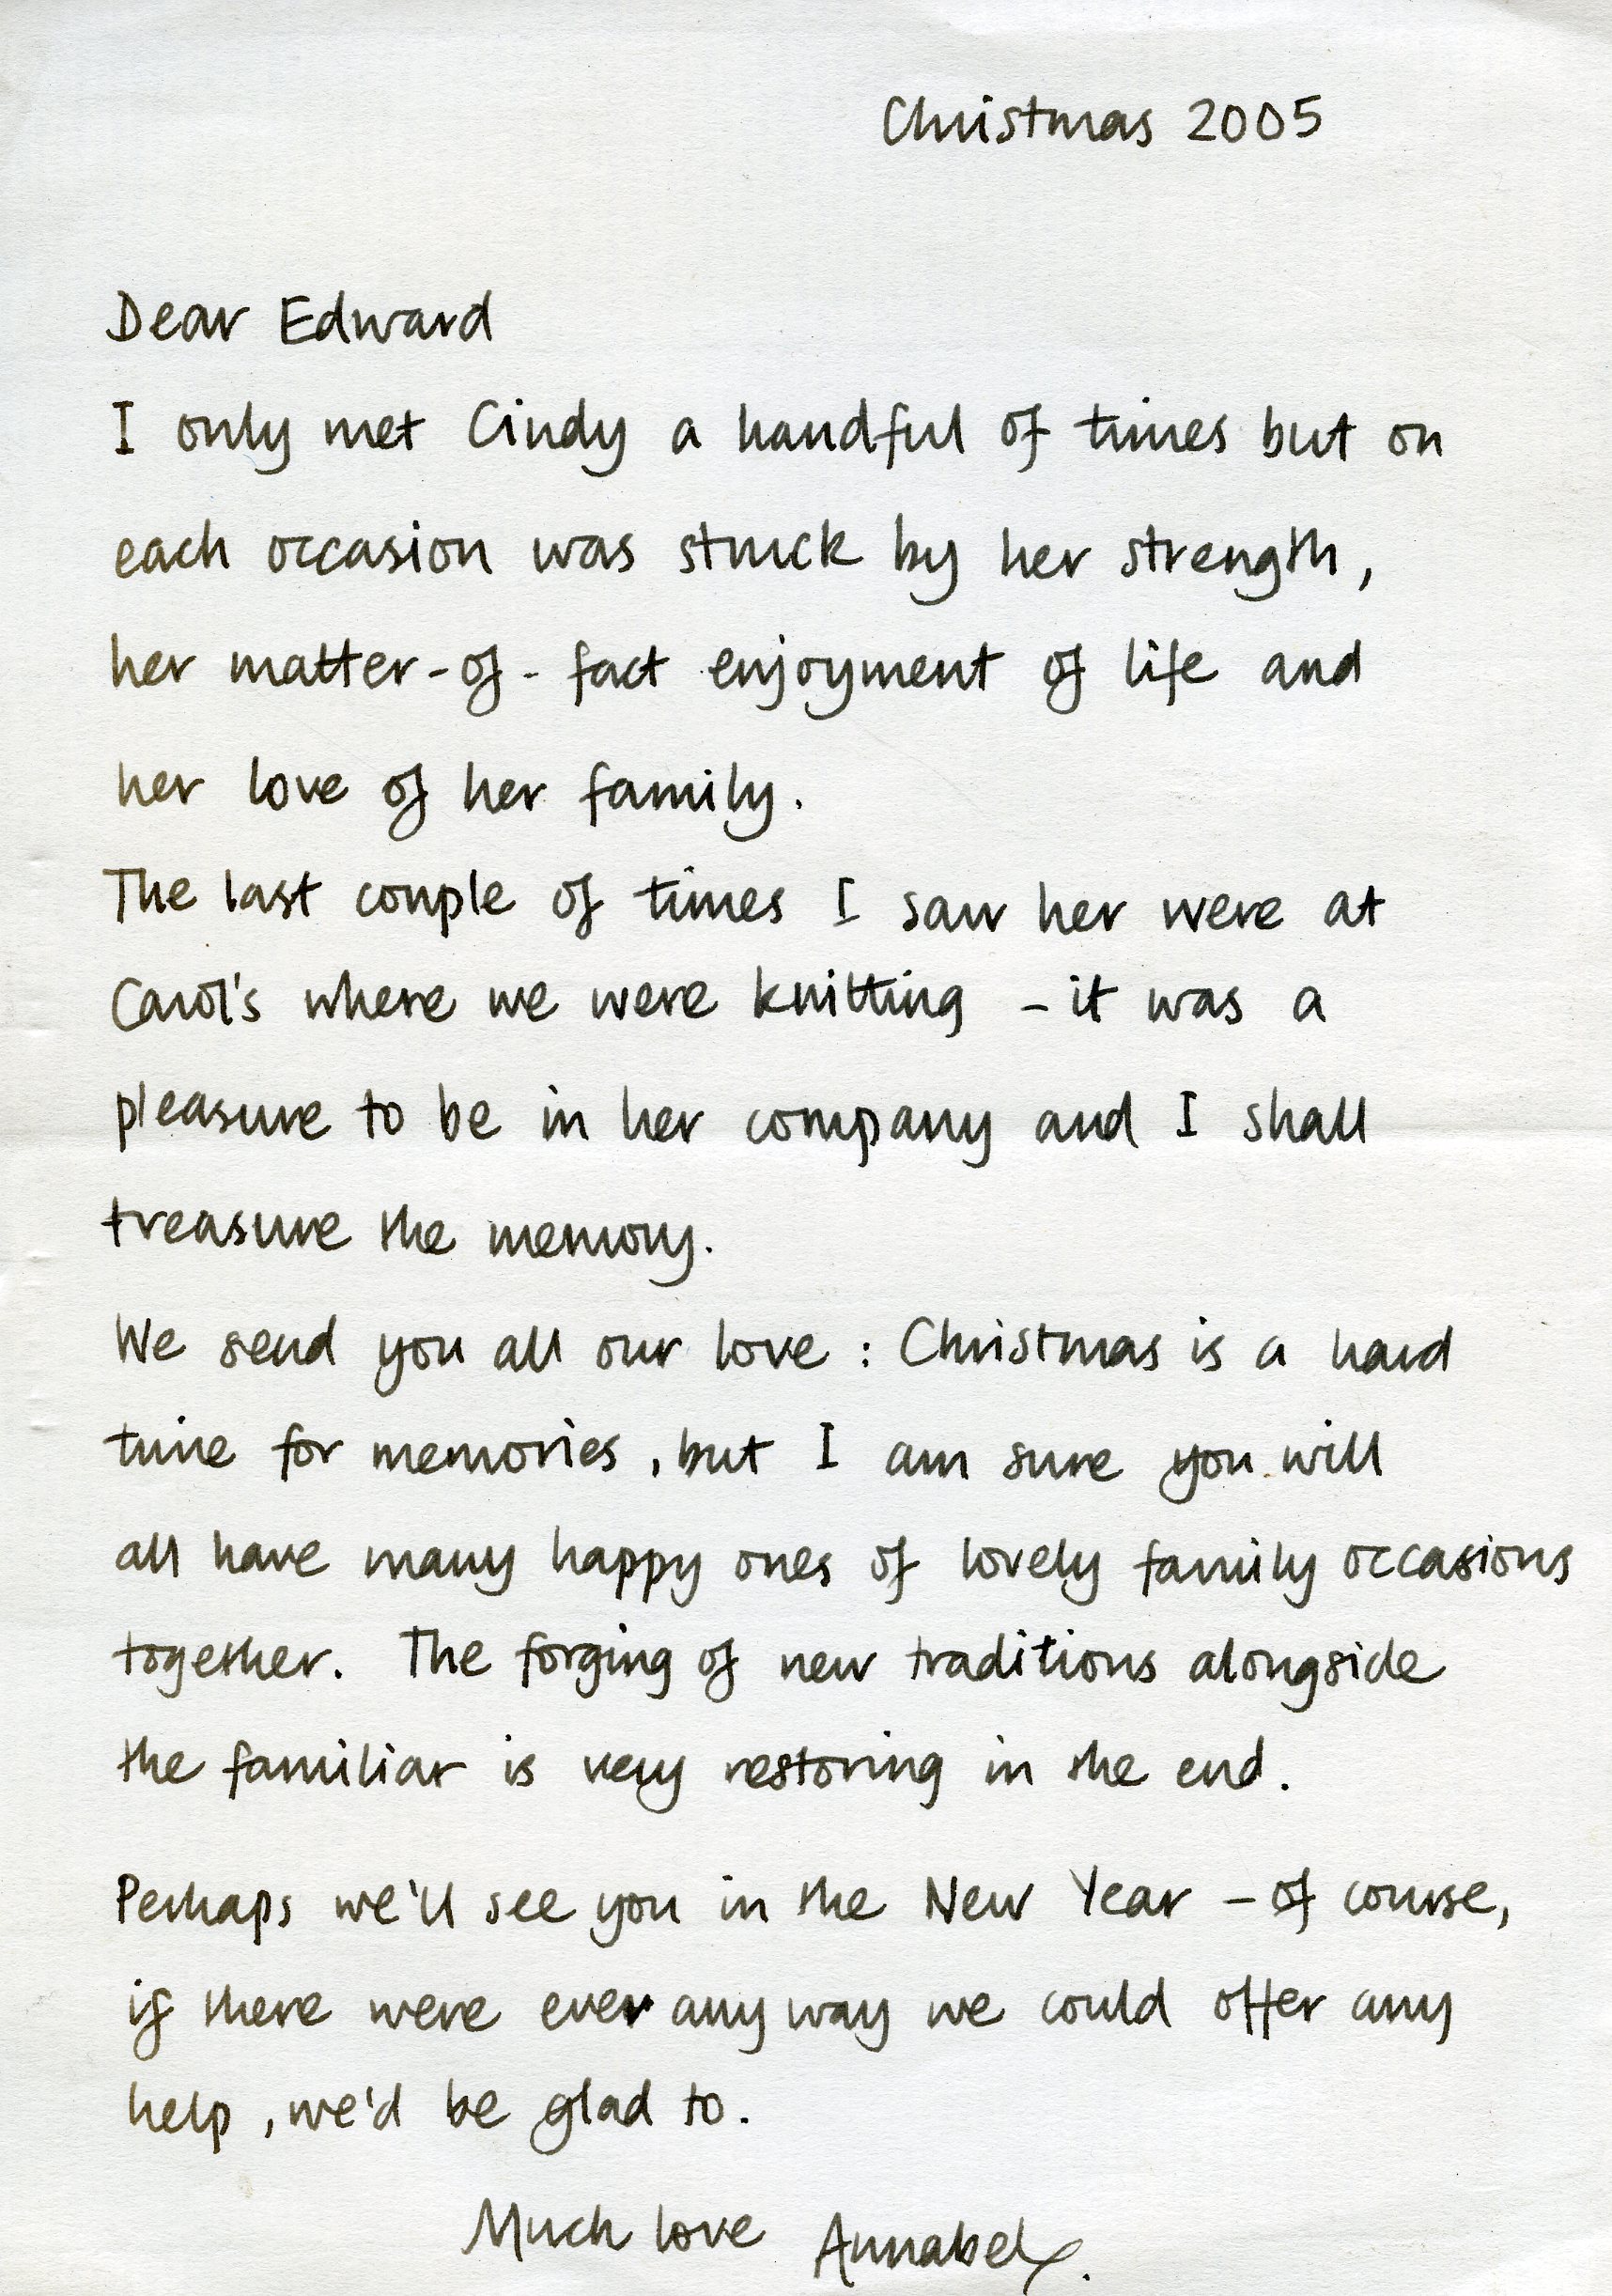 Christmas 2005
Dear Edward
I only met Cindy a handful of times but on
each occasion was struck by her strength,
her matter-of-fact enjoyment of life and
her love of her family.
The last couple of times I saw her were at
Carol's where we were knitting - it was a
pleasure to be in her company and I shall
treasure the memory.
We send you all our love : Christmas is a hard
time for memories, but I am sure you will
all have many happy ones of lovely family occasions
together. The forging of new traditions alongside
the familiar is very restoring in the end.
Perhaps we'll see you in the New Year - of course,
if there were ever any way we could offer any
help, we'd be glad to.
Much love Annabel.